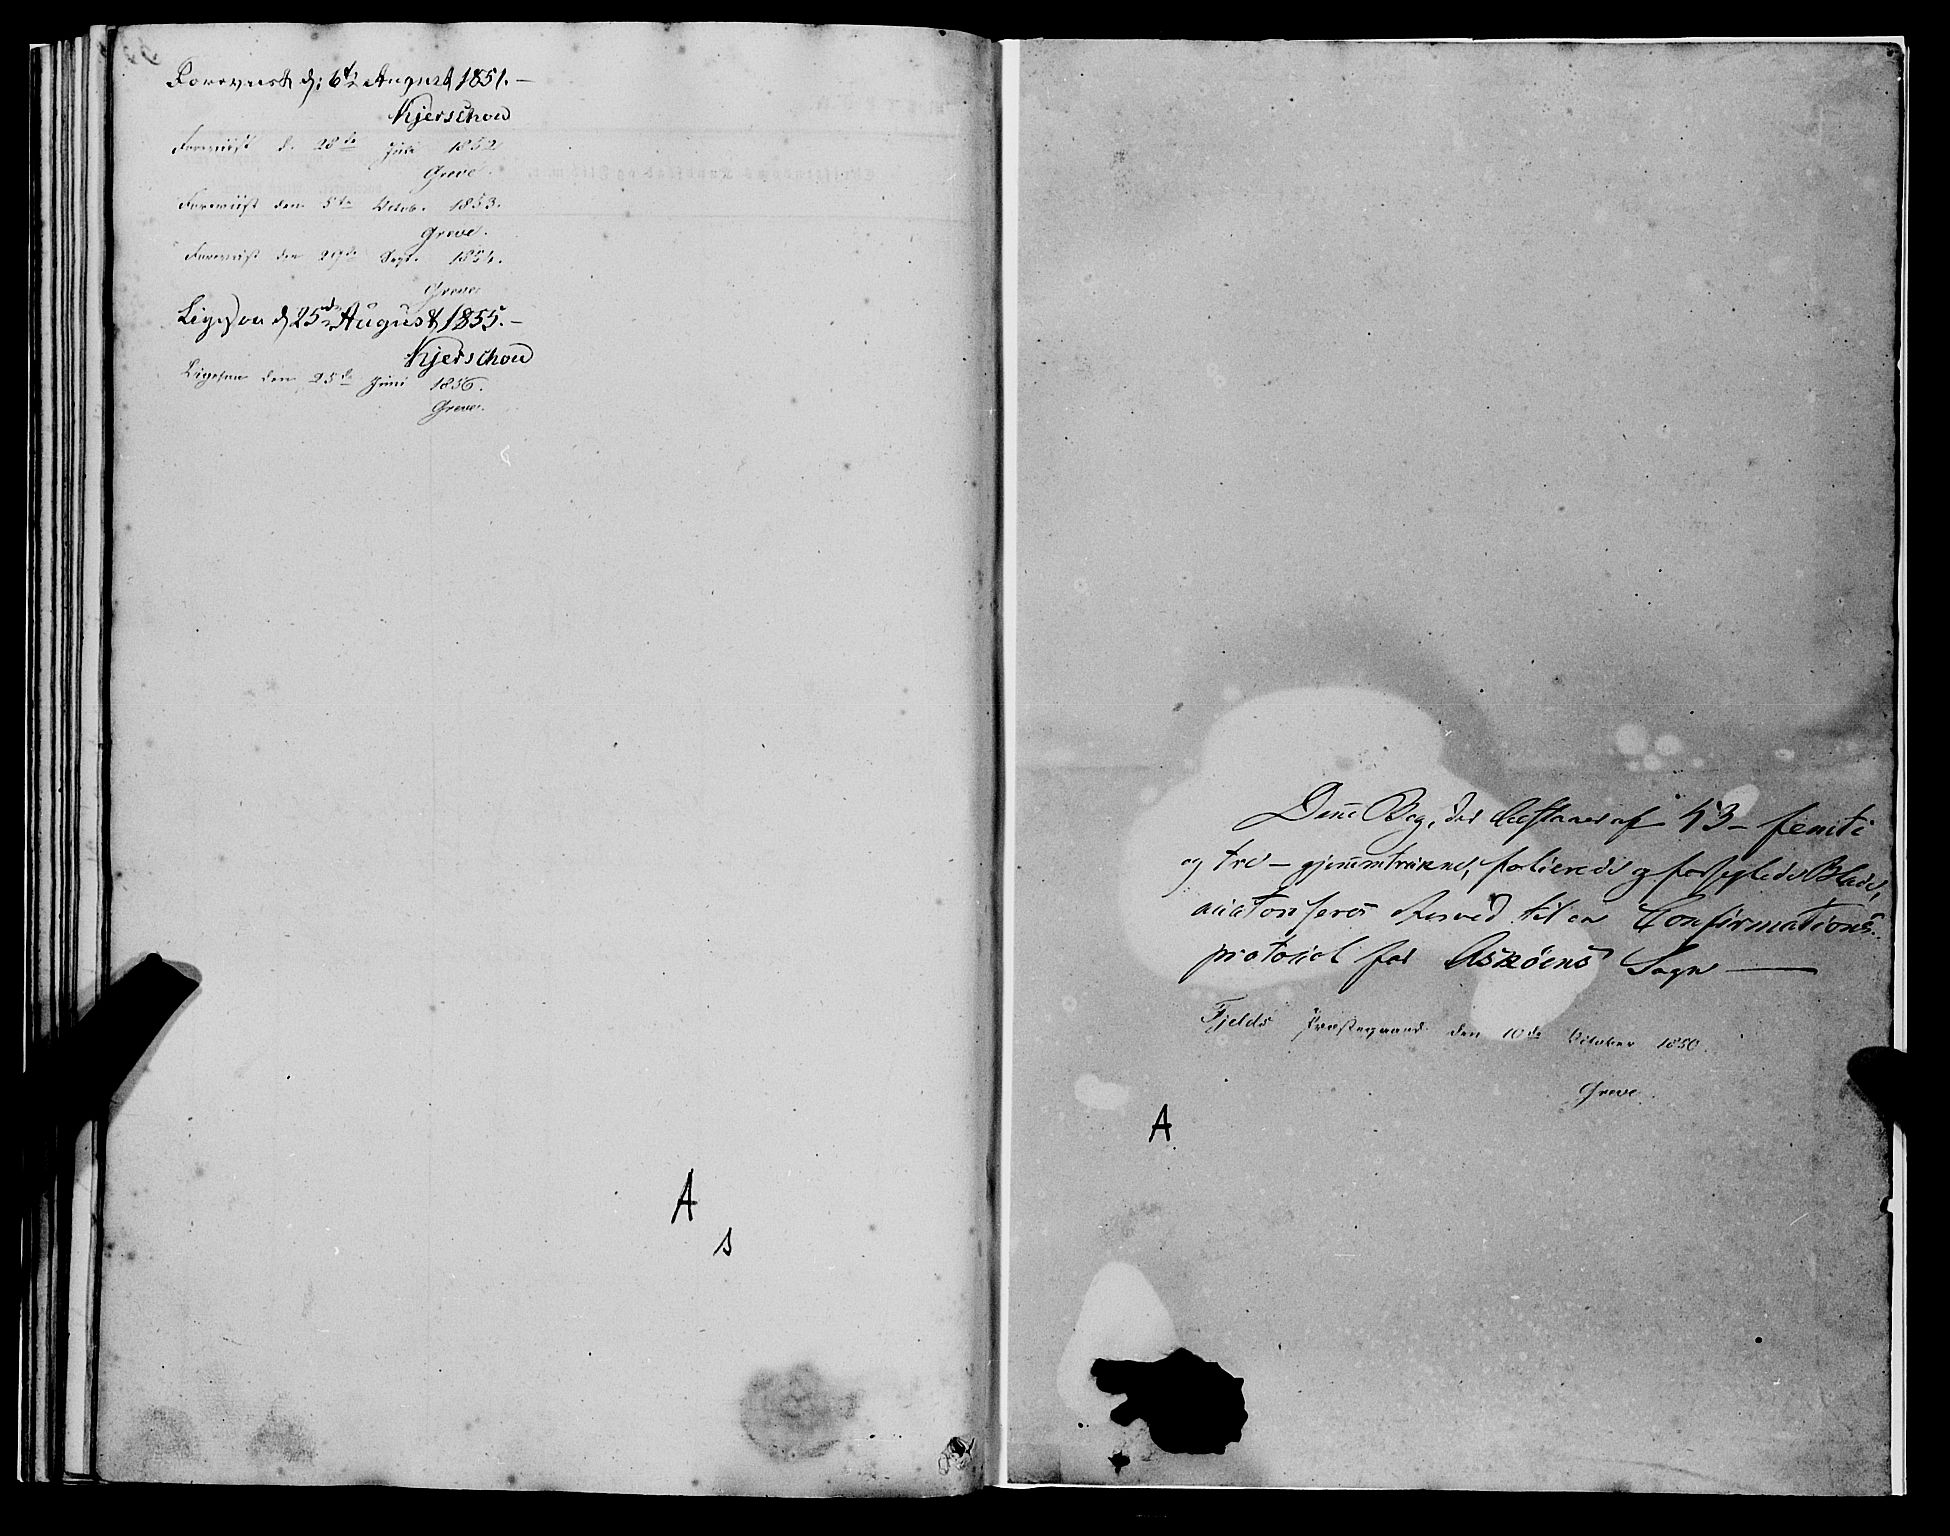 Foreviist d: 6te August 1851. –
Kjerschou
Foreviist d. 28de Juli 1852
Greve.
Foreviist den 5te Octob. 1853.
Greve.
Foreviist den 29de Sept. 1854.
Greve
Ligesaa d 25de August 1855. –
Kjerschou
Ligesaa den 25de Juni 1856.
Greve.
A
s
Denne Bog, der bestaaer af 53 – femti
og tre – gjennemtrukne, folierede og forseglede Blade,
auctoriseres herved til en Confirmations-
protocol for Askøens Sogn —
Fjelds Præstegaard den 10de October 1850.
Greve.
A